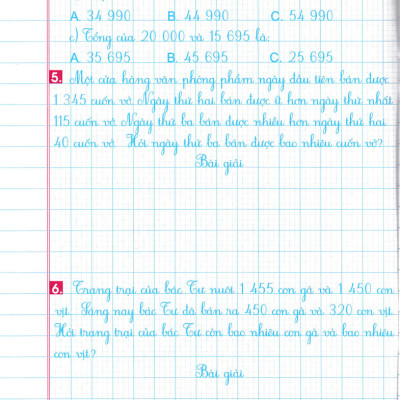 A. 34 990 B. 44 990 C. 54 990
c) Tổng của 20 000 và 15 695 là:
A. 35 695 B. 45 695 C. 25 695
5. Một cửa hàng văn phòng phẩm ngày đầu tiên bán được
1 345 cuốn vở. Ngày thứ hai bán được ít hơn ngày thứ nhất
115 cuốn vở. Ngày thứ ba bán được nhiều hơn ngày thứ hai
40 cuốn vở. Hỏi ngày thứ ba bán được bao nhiêu cuốn vở?
Bài giải
6. Trang trại của bác Tư nuôi 1 455 con gà và 1 450 con
vịt. Sáng nay bác Tư đã bán ra 450 con gà và 320 con vịt.
Hỏi trang trại của bác Tư còn bao nhiêu con gà và bao nhiêu
con vịt?
Bài giải